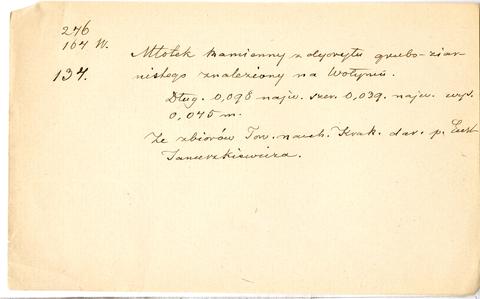 276
164 W.
134.
Młotek kamienny z dyorytu grubo-ziar-
nistego znaleziony na Wołyniu.
Dług. 0,095 najw. szer. 0,039. najw. wys.
0,045 m.
Ze zbiorów Tow. nauk. Krak. dar. p. Eust.
Januszkiewicza.